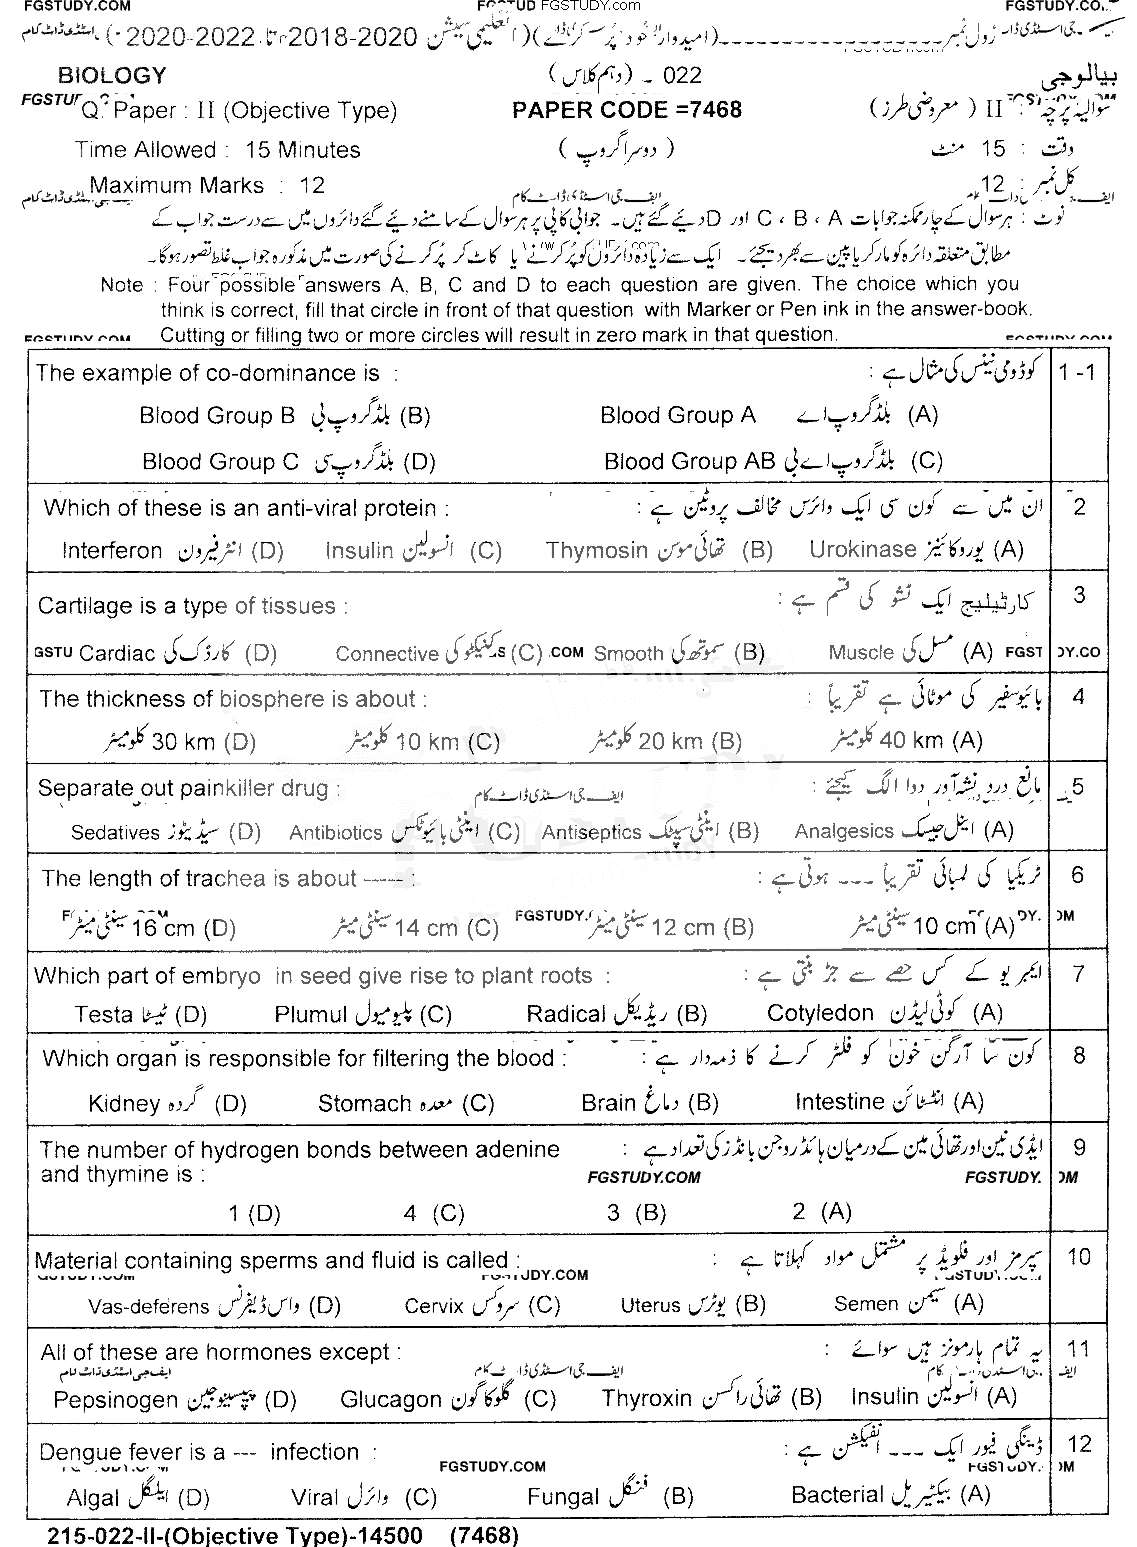 FGSTUDY.COM FGSTUD FGSTUDY.com FGSTUDY.CO
رول نمبر ـــــــــــــــــ (امیدوار خود پُر کرے) (تعلیمی سیشن 2018-2020 تا 2020-2022)
BIOLOGY 022 - (دہم کلاس) بیالوجی
Q. Paper : II (Objective Type) PAPER CODE =7468 سوالیہ پرچہ : II (معروضی طرز)
Time Allowed : 15 Minutes (دوسرا گروپ) وقت : 15 منٹ
Maximum Marks : 12 کل نمبر : 12
ایف جی اسٹڈی ڈاٹ کام
نوٹ : ہر سوال کے چار ممکنہ جوابات A ، B ، C اور D دیئے گئے ہیں۔ جوابی کاپی پر ہر سوال کے سامنے دیئے گئے دائروں میں سے درست جواب کے
مطابق متعلقہ دائرہ کو مارکر یا پین سے بھر دیجئے۔ ایک سے زیادہ دائروں کو پُر کرنے یا کاٹ کر پُر کرنے کی صورت میں مذکورہ جواب غلط تصور ہوگا۔
Note : Four possible answers A, B, C and D to each question are given. The choice which you
think is correct, fill that circle in front of that question with Marker or Pen ink in the answer-book.
Cutting or filling two or more circles will result in zero mark in that question.
The example of co-dominance is : کوڈومی نینس کی مثال ہے : 1 -1
Blood Group B بلڈ گروپ بی (B) Blood Group A بلڈ گروپ اے (A)
Blood Group C بلڈ گروپ سی (D) Blood Group AB بلڈ گروپ اے بی (C)
Which of these is an anti-viral protein : ان میں سے کون سی ایک وائرس مخالف پروٹین ہے : 2
Interferon انٹرفیرون (D) Insulin انسولین (C) Thymosin تھائی موسن (B) Urokinase یوروکائنیز (A)
Cartilage is a type of tissues : کارٹیلیج ایک ٹشو کی قسم ہے : 3
Cardiac کارڈک کی (D) Connective کنیکٹو کی (C) Smooth سموتھ کی (B) Muscle مسل کی (A)
The thickness of biosphere is about : بائیوسفیر کی موٹائی ہے تقریباً : 4
30 km کلومیٹر (D) 10 km کلومیٹر (C) 20 km کلومیٹر (B) 40 km کلومیٹر (A)
Separate out painkiller drug : مانع درد نشہ آور دوا الگ کیجئے : 5
ایف جی اسٹڈی ڈاٹ کام
Sedatives سیڈیٹوز (D) Antibiotics اینٹی بائیوٹکس (C) Antiseptics اینٹی سپٹک (B) Analgesics اینل جیسک (A)
The length of trachea is about ----- : ٹریکیا کی لمبائی تقریباً --- ہوتی ہے : 6
16 cm سینٹی میٹر (D) 14 cm سینٹی میٹر (C) 12 cm سینٹی میٹر (B) 10 cm سینٹی میٹر (A)
Which part of embryo in seed give rise to plant roots : ایمبریو کے کس حصے سے جڑ بنتی ہے : 7
Testa ٹیسٹا (D) Plumul پلیومیول (C) Radical ریڈیکل (B) Cotyledon کوٹی لیڈن (A)
Which organ is responsible for filtering the blood : کون سا آرگن خون کو فلٹر کرنے کا ذمہ دار ہے : 8
Kidney گردہ (D) Stomach معدہ (C) Brain دماغ (B) Intestine انٹسٹائن (A)
The number of hydrogen bonds between adenine ایڈی نین اور تھائی مین کے درمیان ہائڈروجن بانڈز کی تعداد ہے : 9
and thymine is : FGSTUDY.COM FGSTUDY.
1 (D) 4 (C) 3 (B) 2 (A)
Material containing sperms and fluid is called : سپرمز اور فلوئڈ پر مشتمل مواد کہلاتا ہے : 10
Vas-deferens واس ڈیفرنس (D) Cervix سروکس (C) Uterus یوٹرس (B) Semen سیمن (A)
All of these are hormones except : یہ تمام ہارمونز ہیں سوائے : 11
ایف جی اسٹڈی ڈاٹ کام ایف جی اسٹڈی ڈاٹ کام
Pepsinogen پیپسینوجین (D) Glucagon گلوکاگون (C) Thyroxin تھائی راکسن (B) Insulin انسولین (A)
Dengue fever is a --- infection : ڈینگی فیور ایک --- انفیکشن ہے : 12
FGSTUDY.COM
Algal ایلگل (D) Viral وائرل (C) Fungal فنگل (B) Bacterial بیکٹیریل (A)
215-022-II-(Objective Type)-14500 (7468)